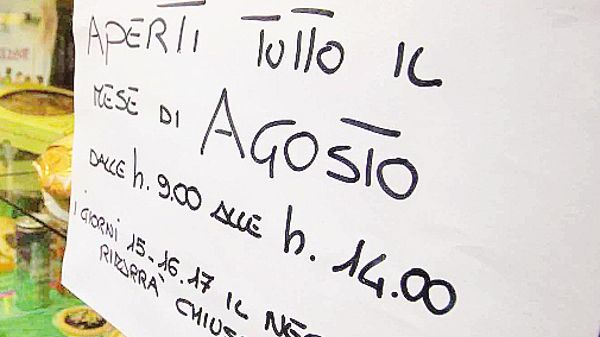 APERTI TUTTO IL
MESE DI AGOSTO
DALLE h. 9.00 ALLE h. 14.00
I GIORNI 15-16.17 IL NEG
RIMARRÀ CHIUS